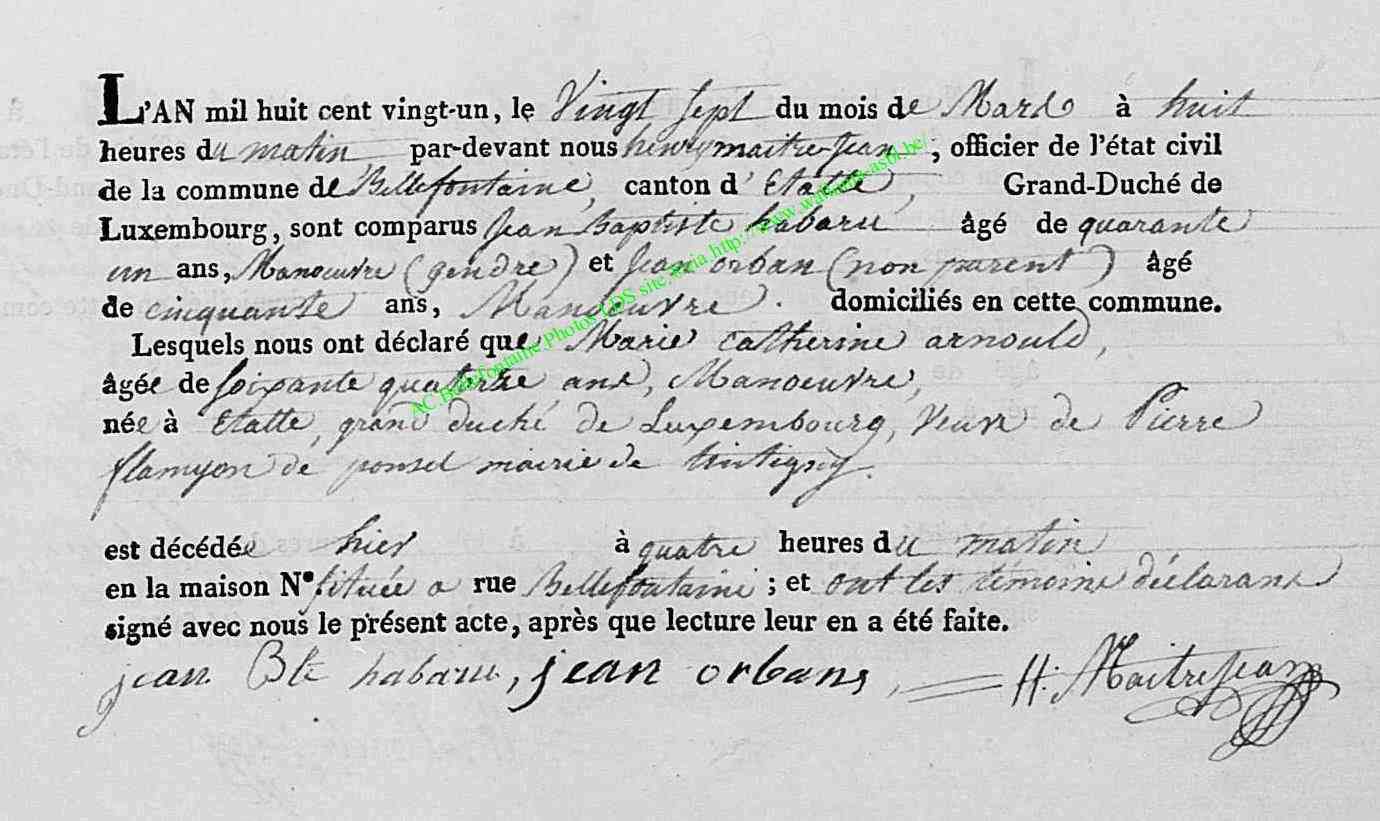 L'AN mil huit cent vingt-un, le Vingt sept du mois de Mars à huit
heures du matin, par-devant nous henry maitre-jean, officier de l'état civil
de la commune de Bellefontaine, canton d'Etalle, Grand-Duché de
Luxembourg, sont comparus Jean Baptiste habaru âgé de quarante
un ans, Manoeuvre (gendre) et Jean orban (non parent) âgé
de cinquante ans, Manoeuvre. domiciliés en cette commune.
Lesquels nous ont déclaré que Marie Catherine arnould,
âgée de soixante quatorze ans, Manoeuvre,
née à Etalle, grand duché de Luxembourg, Veuve de Pierre
flamyon de ponsel mairie de tintigny.
est décédée hier à quatre heures du matin
en la maison N° située a rue Bellefontaine ; et ont les témoins déclarans
signé avec nous le présent acte, après que lecture leur en a été faite.
jean Bte habaru, jean orbans, H: Maitrejean
AC.Bellefontaine Photos CDS site luxia http://www.